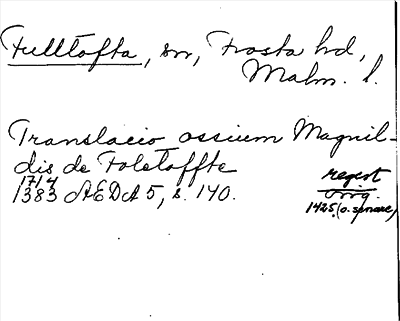 Fulltofta, sn, Frosta hd,
Malm. l.
Translacio ossium Magnil-
dis de Foletoffte
17/4
1383 AEDA 5, s. 140.
regest
orig.
1425 (o. senare)